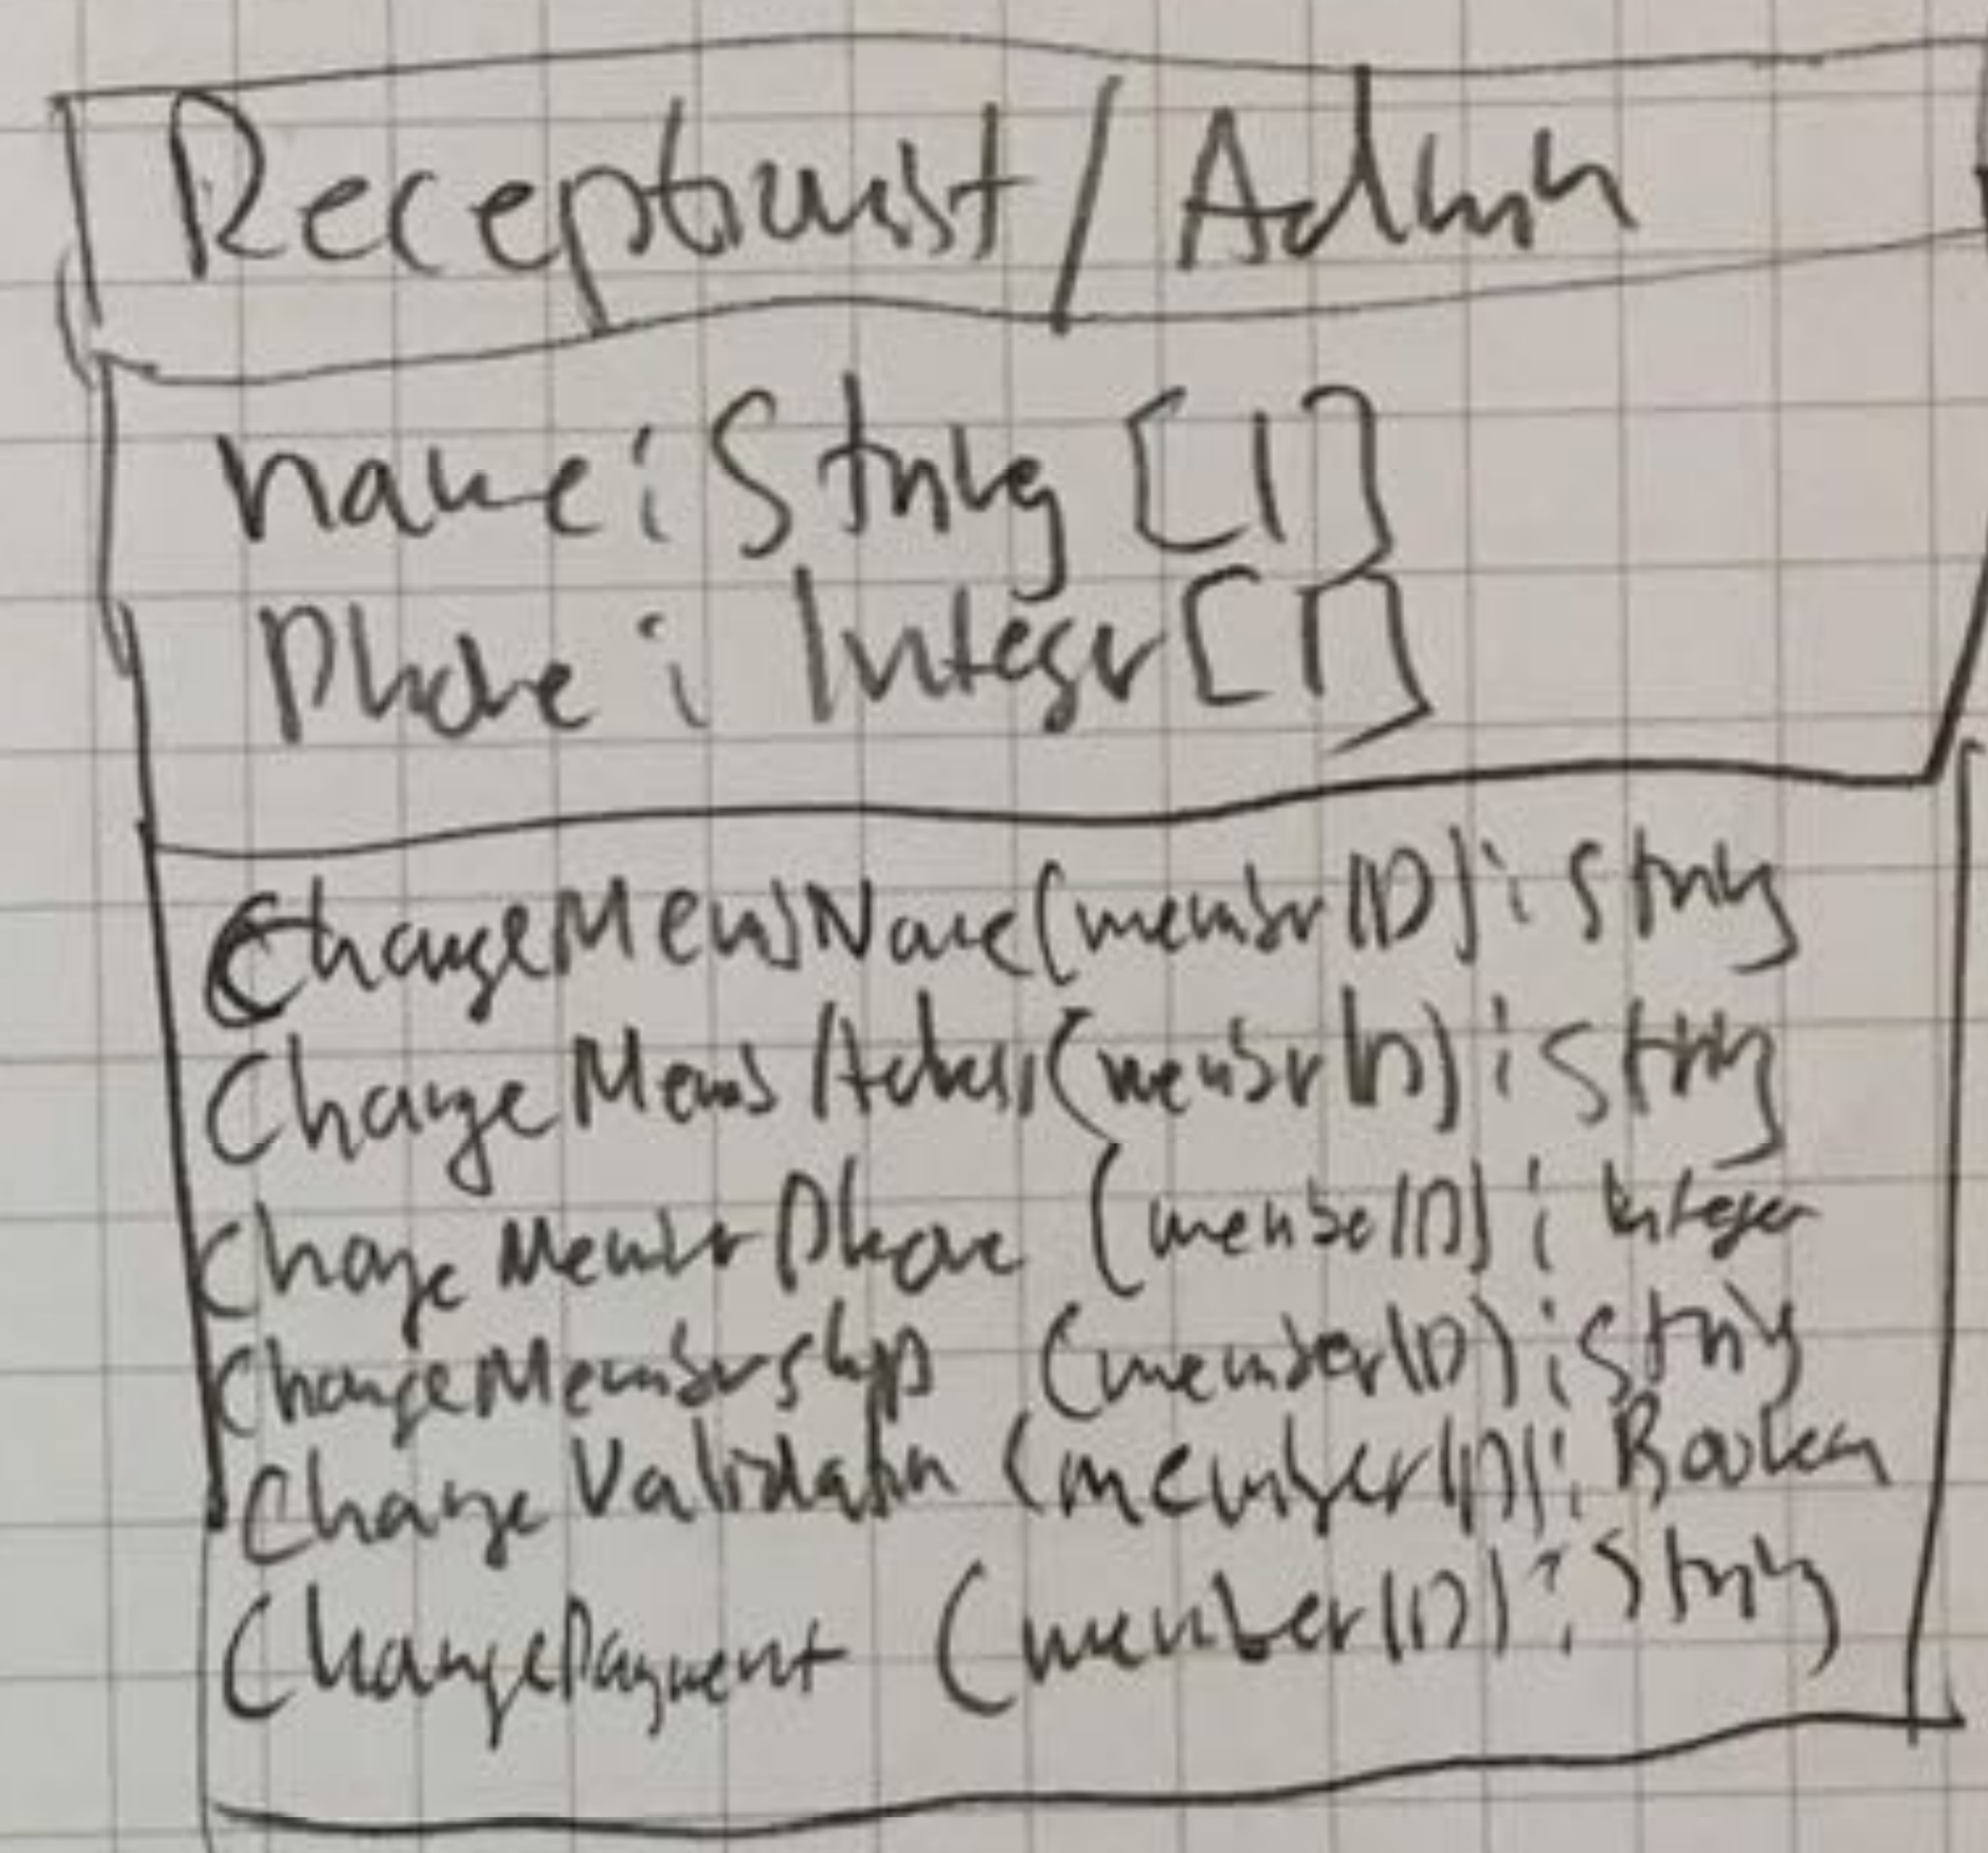 Receptionist / Admin
name : String [1]
Phone : Integer [1]
ChangeMembName (memberID) : String
Change Memb Address (memberID) : String
Change Member Phone (memberID) : Integer
ChangeMembership (memberID) : String
Change Validation (memberID) : Boolean
ChangePayment (memberID) : String